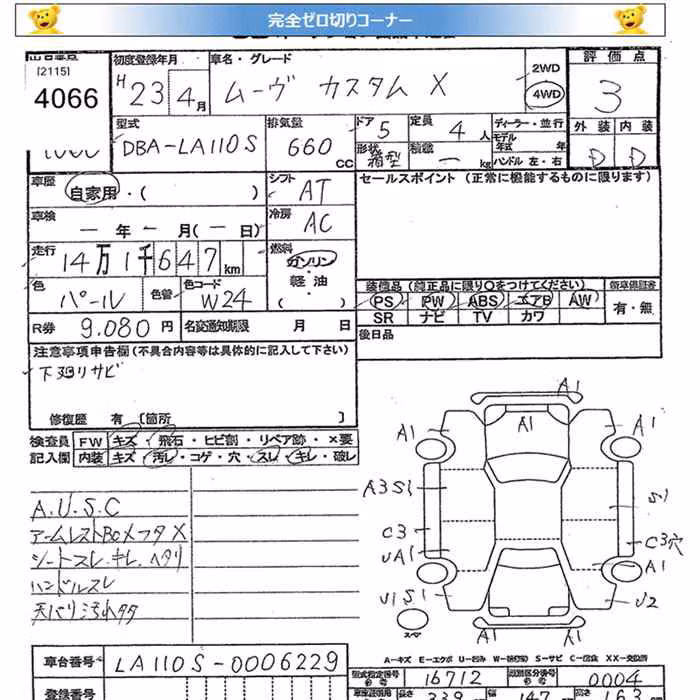 完全ゼロ切りコーナー
[2115]
4066
初度登録年月
H23年4月
車名・グレード
ムーヴ カスタム X
2WD
4WD
評価点
3
型式
DBA-LA110S
排気量
660 CC
ドア 5
定員 4人
形状 箱型
積載 ー kg
ディーラー・並行
モデル年式 年
ハンドル 左・右
外装 内装
D D
車歴 自家用・( )
シフト AT
セールスポイント (正常に機能するものに限ります)
車検 ー年ー月(ー日)
冷房 AC
走行 14万1千647km
燃料 ガソリン・軽油・( )
色 パール 色替
色コード W24
装備品 (純正品に限り○をつけてください)
PS PW ABS エアB AW
SR ナビ TV カワ
有・無
R券 9.080円
名変通知期限 月 日
後日品
注意事項申告欄 (不具合内容等は具体的に記入して下さい)
下廻りサビ
修復歴 有 [箇所 ]
検査員記入欄
FW キズ・飛石・ヒビ割・リペア跡・×要
内装 キズ・汚レ・コゲ・穴・スレ・キレ・破レ
A.U.S.C
アームレストBOXフタX
シートスレ.キレ.ヘタリ
ハンドルスレ
天バリ汚れタタ
A1
A1
A1 A1
A3S1
S1
C3
C3穴
UA1
A1
U1S1
U2
スペア
A1 A1
A-キズ E-エクボ U-凹み S-サビ C-腐食 XX-交換済
車台番号 LA110S-0006229
型式指定番号 16712
類別区分番号 0004
登録番号
長さ 339
幅 147
高さ